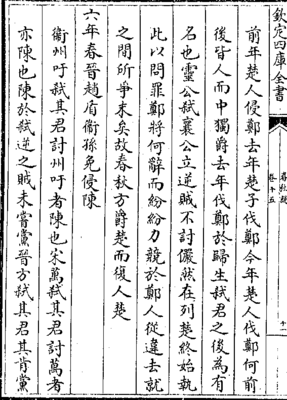 欽定四庫全書
卷十五
前年楚人侵鄭去年楚子伐鄭今年楚人伐鄭何前
後皆人而中獨爵去年伐鄭於歸生弑君之後為有
名也靈公弑襄公立逆賊不討儼然在列楚終始執
此以問罪鄭將何辭而紛紛力競於鄭人從違去就
之間所爭末矣故春秋方爵楚而復人楚
六年春晉趙盾衛孫免侵陳
衛州吁弑其君討州吁者陳也宋萬弑其君討萬者
亦陳也陳於弑逆之賊未嘗黨晉方弑其君其肯黨